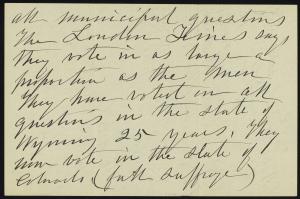 all municipal questions
The London Times says
they vote in as large a
proportion as the men
They have voted in all
questions in the state of
Wyming 25 years, They
now vote in the state of
Colorado (full suffrage)